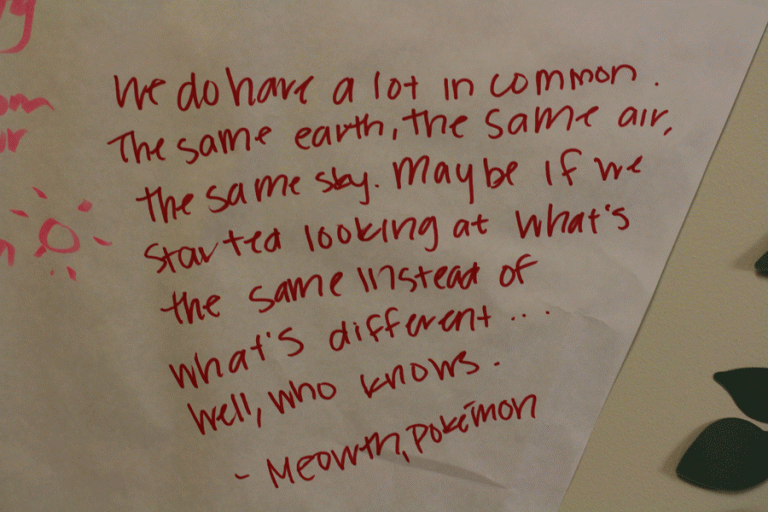 We do have a lot in common.
The same earth, the same air,
the same sky. Maybe if we
started looking at what's
the same instead of
what's different...
well, who knows.
- Meowth, Pokémon